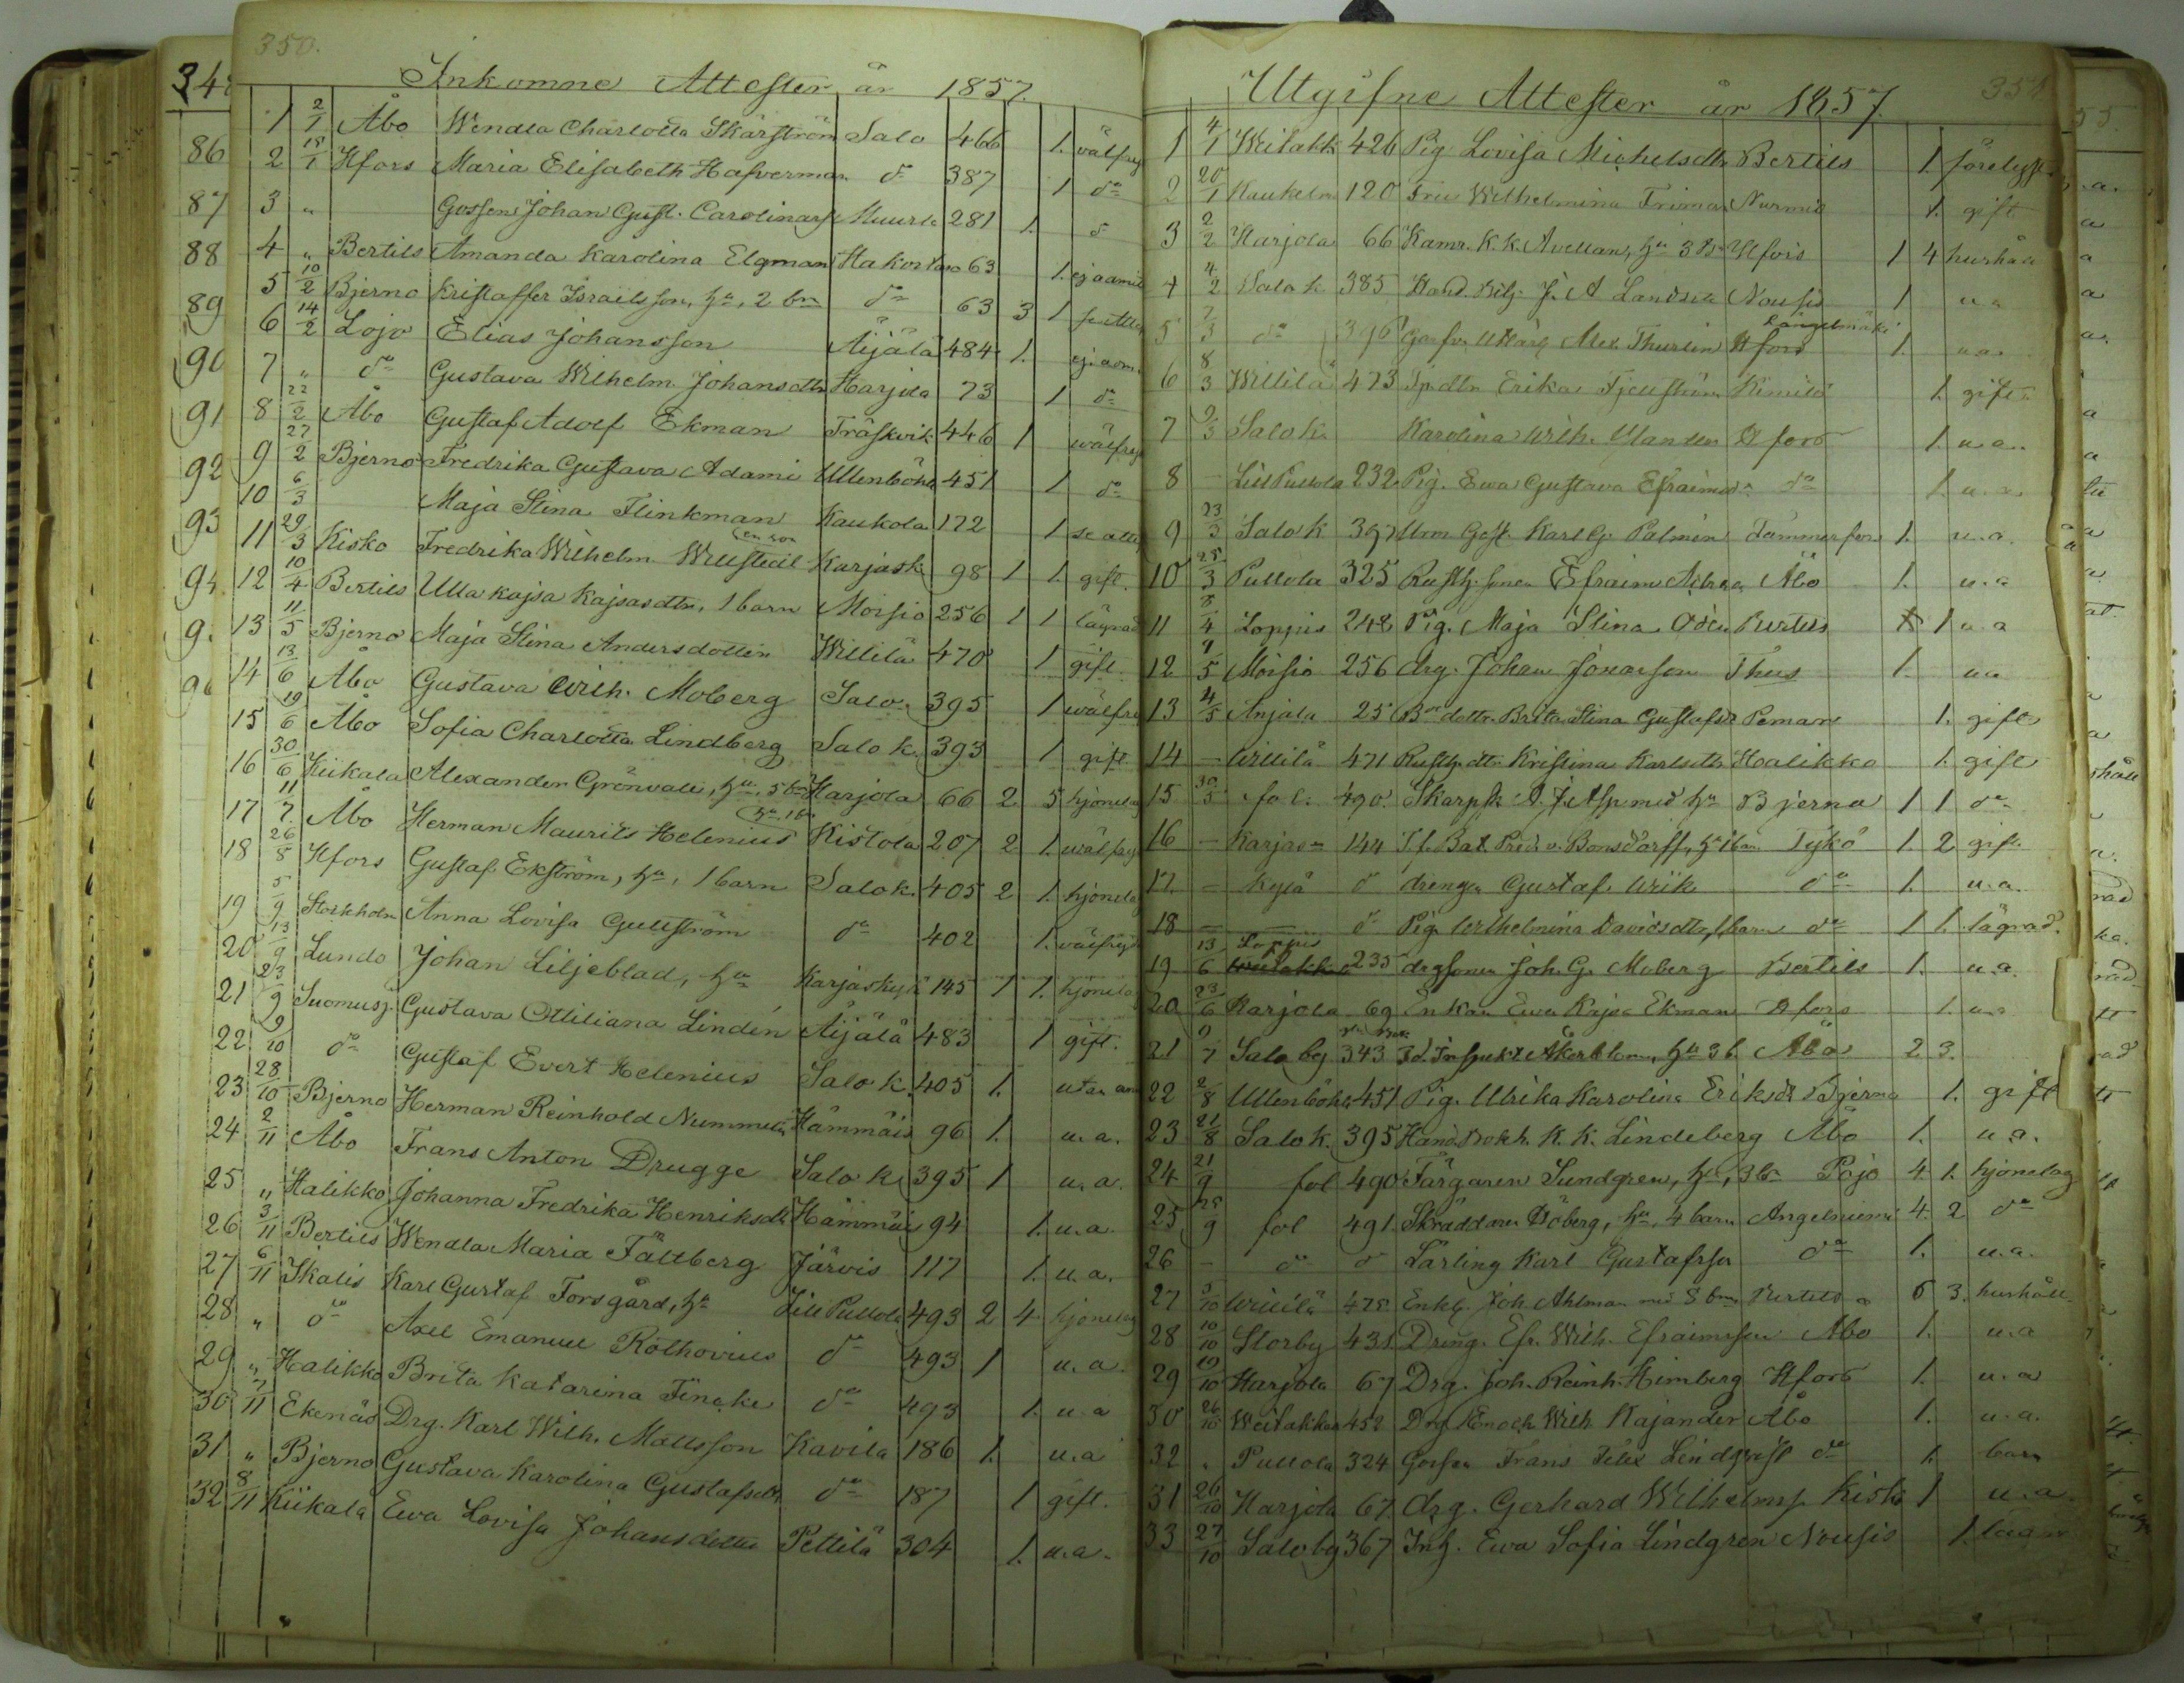 350.
Inkomne Attester år 1857.
1 2/1 Åbo Wendla Charlotta Skärström Salo 466 1. välfrejd
2 18/1 Hfors Maria Elisabeth Hafverman do 387 1 do
3 " Gossen Johan Gust. Carolinas Muurla 281 1. do
4 " Bertils Amanda Karolina Elgman Hakostaro 63 1. ej admit
5 10/2 Bjerno Kristoffer Israelsson, hu, 2 bn do 63 3 1
6 14/2 Lojo Elias Johansson Äijälä 484 1. ej adm.
7 " do Gustava Wilhelm. Johansdtr Harjola 73 1 do
8 22/2 Åbo Gustaf Adolf Ekman Träskvik 446 1 wälfrejd
9 27/2 Bjerno Fredrika Gustava Adami Ullenböhle 451 1 do
10 6/3 Maja Stina Flinkman Kaukola 172 1 se att
11 29/3 Kisko Fredrika Wilhelm. Willstedt en son Karjask 98 1 1. gift.
12 10/4 Bertils Ulla Kajsa Kajsasdtr, 1 barn Moisio 256 1 1 lägrad
13 11/5 Bjerno Maja Stina Andersdotter Willilä 470 1 gift.
14 13/6 Åbo Gustava Wilh. Moberg Salo 395 1 wälfre
15 19/6 Åbo Sofia Charlotta Lindberg Salo k. 393 1 gift
16 30/6 Kiikala Alexander Grönvall, hu, 5 bn Harjola 66 2 5 hjonelag
17 11/7 Åbo Herman Maurits Helenius hu 1 bn Kistola 207 2 1. wälfrejd
18 26/8 Hfors Gustaf Ekström, hu, 1 barn Salo k. 405 2 1. hjonelag
19 5/9 Stockholm Anna Lovisa Gullström do 402 1. välfrejd
20 13/9 Lundo Johan Liljeblad, hu Karjaskylä 145 1 1. hjonelag
21 23/9 Suomusj. Gustava Ottiliana Lindén Äijälä 483 1 gift.
22 9/10 do Gustaf Evert Helenius Salo k. 405 1. utan anm
23 28/10 Bjerno Herman Reinhold Nummelin Hämmäis 96 1. u. a.
24 2/11 Åbo Frans Anton Drugge Salo k 395 1 u. a.
25 " Halikko Johanna Fredrika Henriksdtr Hämmäis 94 1. u. a.
26 3/11 Bertils Wendla Maria Fältberg Järvis 117 1. u. a.
27 6/11 Ikalis Karl Gustaf Forsgård, hu Lill Pullola 493 2 4. hjonelag
28 " do Axel Emanuel Rothovius do 493 1 u. a.
29 " Halikko Brita Katarina Fincke do 493 1. u. a
30 7/11 Ekenäs Drg. Karl Wilh. Mattsson Kavila 186 1. u. a
31 " Bjerno Gustava Karolina Gustafsdtr do 187 1 gift.
32 8/11 Kiikala Ewa Lovisa Johansdotter Pettilä 304 1. u. a.
Utgifne Attester år 1857.
1 4/1 Weitakk 426 Pig Lovisa Michelsdtr Bertils 1.
2 20/1 Kaukola 120 Fru Wilhelmina Friman Nurmis 1. gift
3 2/2 Harjola 66 Kamr. K. K. Avellan, hu 3 b Hfors 1 4 hushåll
4 4/2 Salo k 385 Hand. Betj. J. A Landzett Nousis 1 u a
5 7/3 do 396 Alex. Thurlin Hfors Längelmäki 1. u a
6 8/3 Willilä 473 Sp.dtr Erika Fjellström Kimito 1. gift
7 9/3 Salo k. Karolina Wilh. Ylander Hfors 1. u. a.
8 – Lill Pullola 232 Pig. Ewa Gustava Efraimsdr do 1. u. a.
9 23/3 Salo k 397 Urm. Ges. Karl G. Palmin Tammerfors 1. u. a.
10 25/3 Pullola 325 Rusth. sonen Efraim Åbo 1. u. a
11 8/4 Loppis 248 Pig. Maja Stina Bertils 1 u a
12 9/5 Moisio 256 drg. Johan Jonasson Thus 1. u a
13 4/5 Anjala 25 Bdedottr. Brita Stina Gustafsdr Pemar 1. gift
14 – Willilä 471 Rusth. dtr. Kristina Karlsdtr Halikko 1. gift
15 30/5 fol. 490 Skarpsk. A. F. Asp med hu Bjerno 1 1 do
16 – Karjas 144 T. f. Bat. Pred. v. Bonsdorff, hu 1 barn Tykö 1. 2 gift.
17 – kylä do drengen Gustaf Wiik do 1. u. a.
18 – do Pig. Wilhelmina Davidsdtr, 1 barn do 1 1. lägrad.
19 13/6 Loppis 235 drgsonen Joh. G. Moberg Bertils 1. u. a.
20 23/6 Harjola 69 Enkan Ewa Kajsa Ekman Hfors 1. u. a
21 9/7 Salo by 343 Fd. Inspekt. Åkerblom, hu 3 b Åbo 2 3.
22 2/8 Ullenböhle 451 Pig. Ulrika Karolina Eriksdr Bjerno 1. gift
23 21/8 Salo k. 395 Hand. Bokh. K. K. Lindeberg Åbo 1. u. a.
24 21/9 fol 490 Färgaren Sundgren, hu, 3 bn Pojo 4. 1. hjonelag
25 25/9 fol 491. Skräddaren Öberg, hu, 4 barn Angelniemi 4. 2 do
26 – do do Lärling Karl Gustafsson do 1. u. a.
27 5/10 Willilä 475 Enkl. Joh. Ahlman med 8 bn Bertils 6 3. hushåll
28 10/10 Storby 431. Dreng. Efr. Wilh. Efraimsson Åbo 1. u. a
29 19/10 Harjola 67 Drg. Joh. Reinh. Himberg Hfors 1. u. a
30 26/10 Weitakka 452 Drg. Enoch Wilh Kajander Åbo 1. u. a.
32 " Pullola 324 Gossen Frans Felix Lindqvist do 1. barn
31 26/10 Harjola 67. drg. Gerhard Wilhelmss. Kisko 1 u. a.
33 27/10 Salo by 367 Inh. Ewa Sofia Lindgren Nousis 1.